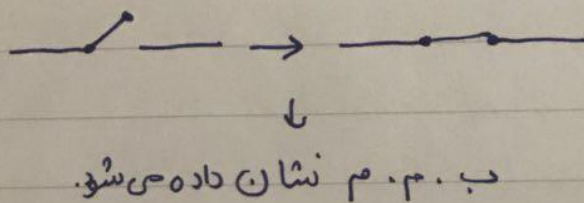 ب . م . م نشان داده می شود.